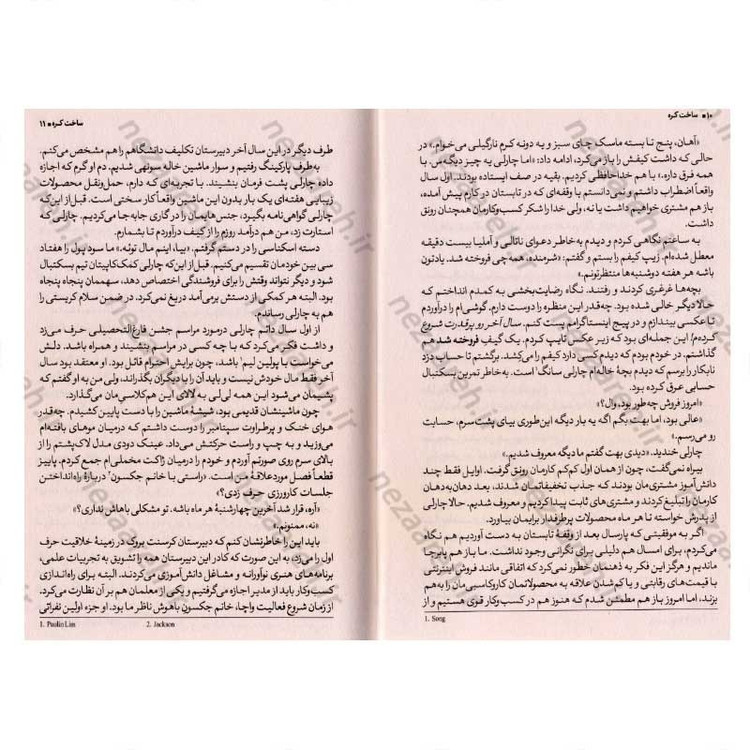 ۱۰ ■ ساخت کره
«آهان، پنج تا بسته ماسک چای سبز و یه دونه کرم نارگیلی می‌خوام.» در
حالی که داشت کیفش را باز می‌کرد، ادامه داد: «اما چارلی یه چیز دیگه‌س. با
همه فرق داره.» با هم خداحافظی کردیم. بقیه در صف ایستاده بودند. اول سال
واقعاً اضطراب داشتم و نمی‌دانستم با وقفه‌ای که در تابستان در کارم پیش آمده،
باز هم مشتری خواهیم داشت یا نه، ولی خدا را شکر کسب‌وکارمان همچنان رونق
داشت.
به ساعتم نگاهی کردم و دیدم به‌خاطر دعوای ناتالی و آملیا بیست دقیقه
معطل شده‌ام. زیپ کیفم را بستم و گفتم: «شرمنده، همه‌چی فروخته شد. یادتون
باشه هر هفته دوشنبه‌ها منتظرتونم.»
بچه‌ها غرغری کردند و رفتند. نگاه رضایت‌بخشی به کمدم انداختم که
حالا دیگر خالی شده بود. چه‌قدر این منظره را دوست دارم. گوشی‌ام را درآوردم
تا عکسی بیندازم و در پیج اینستاگرامم پست کنم. سال آخر رو پرقدرت شروع
کردم! این جمله‌ای بود که زیر عکس تایپ کردم. یک گیفِ فروخته شد هم
گذاشتم. در خودم بودم که دیدم کسی دارد کیفم را می‌کشد. برگشتم تا حساب دزد
نابکار را برسم که دیدم بچهٔ خاله‌ام چارلی سانگ۱ است. به‌خاطر تمرین بسکتبال
حسابی عرق کرده بود.
«امروز فروش چه‌طور بود، وال؟»
«عالی بود، اما بهت بگم اگه یه بار دیگه این‌طوری بیای پشت سرم، حسابت
رو می‌رسم.»
چارلی خندید. «دیدی بهت گفتم ما دیگه معروف شدیم.»
بیراه نمی‌گفت، چون از همان اول کم‌کم کارمان رونق گرفت. اوایل فقط چند
دانش‌آموز مشتری‌مان بودند که جذب تخفیفاتمان شدند، بعد دهان‌به‌دهان
کارمان را تبلیغ کردند و مشتری‌های ثابت پیدا کردیم و معروف شدیم. حالا چارلی
از پدرش خواسته تا هر ماه محصولات پرطرفدار برایمان بیاورد.
اگر به موفقیتی که پارسال بعد از وقفهٔ تابستان به دست آوردیم هم نگاه
می‌کردم، برای امسال هم دلیلی برای نگرانی وجود نداشت. ما باز هم پابرجا
ماندیم و هرگز این فکر به ذهنمان خطور نمی‌کرد که اتفاقی مانند فروش اینترنتی
با قیمت‌های رقابتی و یا کم شدن علاقه به محصولاتمان کاروکاسبی‌مان را به هم
بزند، اما امروز باز هم مطمئن شدم که هنوز هم در کسب‌وکار قوی هستیم و از
1. Song
ساخت کره ■ ۱۱
طرف دیگر در این سال آخر دبیرستان تکلیف دانشگاهم را هم مشخص می‌کنم.
به‌طرف پارکینگ رفتیم و سوار ماشین خاله سونهی شدیم. دم او گرم که اجازه
داده چارلی پشت فرمان بنشیند. با تجربه‌ای که دارم، حمل‌ونقل محصولات
زیبایی هفته‌ای یک بار بدون این ماشین واقعاً کار سختی است. قبل از این‌که
چارلی گواهی‌نامه بگیرد، جنس‌هایمان را در گاری جابه‌جا می‌کردیم. چارلی که
استارت زد، من هم درآمد روزم را از کیف درآوردم تا بشمارم.
دسته اسکناسی را در دستم گرفتم. «بیا، اینم مال توئه.» ما سود پول را هفتاد
سی بین خودمان تقسیم می‌کنیم. قبل از این‌که چارلی کمک‌کاپیتان تیم بسکتبال
شود و دیگر نتواند وقتش را برای فروشندگی اختصاص دهد، سهممان پنجاه پنجاه
بود. البته هر کمکی از دستش برمی‌آمد دریغ نمی‌کرد. در ضمن سلام کریستی را
هم به چارلی رساندم.
از اول سال دائم چارلی درمورد مراسم جشن فارغ‌التحصیلی حرف می‌زد
و داشت فکر می‌کرد که با چه کسی در مراسم بنشیند و همراه باشد. دلش
می‌خواست با پرلین لیم۱ باشد، چون برایش احترام قائل بود. او معتقد بود سال
آخر فقط مال خودش نیست و باید آن را با دیگران بگذراند، ولی من به او گفتم که
پشیمان می‌شود این همه لی‌لی به لالای این هم‌کلاسی‌مان می‌گذارد.
چون ماشینشان قدیمی بود، شیشهٔ ماشین را با دست پایین کشیدم. چه‌قدر
هوای خنک و پرطراوت سپتامبر را دوست داشتم. از درمیان موهای بافته‌ام
می‌وزید و به چپ و راست حرکتش می‌داد. عینک دودی مدل لاک‌پشتم را از
بالای سرم روی صورتم آوردم و خودم را درمیان ژاکت مخملی‌ام جمع کردم. پاییز
قطعاً فصل موردعلاقهٔ من است. «راستی با خانم جکسون۲ دربارهٔ راه‌انداختن
جلسات کارورزی حرف زدی؟»
«آره، قرار شد آخرین چهارشنبهٔ هر ماه باشه. تو مشکلی باهاش نداری؟»
«نه، ممنونم.»
باید این را خاطرنشان کنم که دبیرستان کرسنت بروک در زمینهٔ خلاقیت حرف
اول را می‌زد، به این صورت که کادر این دبیرستان همه را تشویق به تجربیات علمی،
برنامه‌های هنری نوآورانه و مشاغل دانش‌آموزی می‌کردند. البته برای راه‌اندازی
کسب‌وکار باید از مدیر اجازه می‌گرفتیم و یکی از معلمان هم بر آن نظارت می‌کرد.
از زمان شروع فعالیت واچا، خانم جکسون باهوش ناظر ما بود. او جزء اولین نفراتی
1. Paulin Lim 2. Jackson
nezaareh.ir